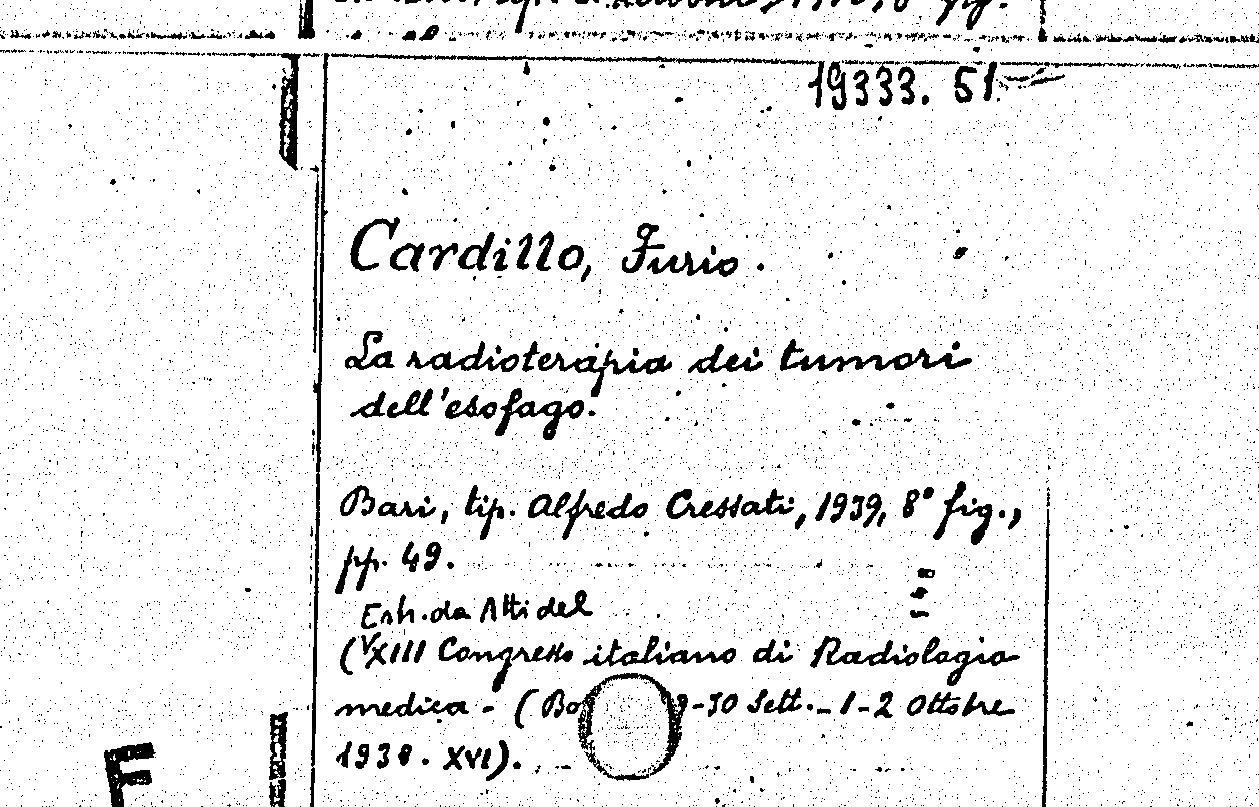 19333. 51
Cardillo, Furio.
La radioterapia dei tumori
dell'esofago.
Bari, tip. Alfredo Cressati, 1939, 8° fig.,
pp. 49.
Estr. da Atti del
(XIII Congresso italiano di Radiologia
medica - ( -30 Sett. - 1-2 Ottobre
1938. XVI).
F